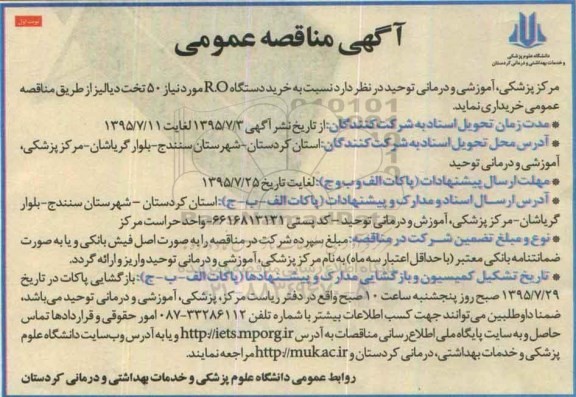 نوبت اول
آگهی مناقصه عمومی
دانشگاه علوم پزشکی
و خدمات بهداشتی و درمانی کردستان
مرکز پزشکی، آموزشی و درمانی توحید در نظر دارد نسبت به خرید دستگاه R.O مورد نیاز ۵۰ تخت دیالیز از طریق مناقصه
عمومی خریداری نماید.
* مدت زمان تحویل اسناد به شرکت کنندگان: از تاریخ نشر آگهی ۱۳۹۵/۷/۳ لغایت ۱۳۹۵/۷/۱۱
* آدرس محل تحویل اسناد به شرکت کنندگان: استان کردستان-شهرستان سنندج-بلوار گریاشان-مرکز پزشکی،
آموزشی و درمانی توحید
* مهلت ارسال پیشنهادات (پاکات الف و ب و ج): لغایت تاریخ ۱۳۹۵/۷/۲۵
* آدرس ارسال اسناد و مدارک و پیشنهادات (پاکات الف-ب-ج): استان کردستان - شهرستان سنندج-بلوار
گریاشان-مرکز پزشکی، آموزش و درمانی توحید-کد پستی ۶۶۱۶۸۱۳۱۳۱-واحد حراست مرکز
* نوع و مبلغ تضمین شرکت در مناقصه: مبلغ سپرده شرکت در مناقصه را به صورت اصل فیش بانکی و یا به صورت
ضمانتنامه بانکی معتبر (با حداقل اعتبار سه ماه) به نام مرکز پزشکی، آموزشی و درمانی توحید واریز و ارائه گردد.
* تاریخ تشکیل کمیسیون و بازگشایی مدارک و پیشنهادها (پاکات الف-ب-ج): بازگشایی پاکات در تاریخ
۱۳۹۵/۷/۲۹ صبح روز پنجشنبه ساعت ۱۰ صبح واقع در دفتر ریاست مرکز، پزشکی، آموزشی و درمانی توحید می‌باشد،
ضمنا داوطلبین می‌توانند جهت کسب اطلاعات بیشتر با شماره تلفن ۳۳۲۸۶۱۱۲-۰۸۷ امور حقوقی و قراردادها تماس
حاصل و به سایت پایگاه ملی اطلاع رسانی مناقصات به آدرس http://iets.mporg.ir و یا به آدرس وب سایت دانشگاه علوم
پزشکی و خدمات بهداشتی، درمانی کردستان و http://muk.ac.ir مراجعه نمایند.
روابط عمومی دانشگاه علوم پزشکی و خدمات بهداشتی و درمانی کردستان